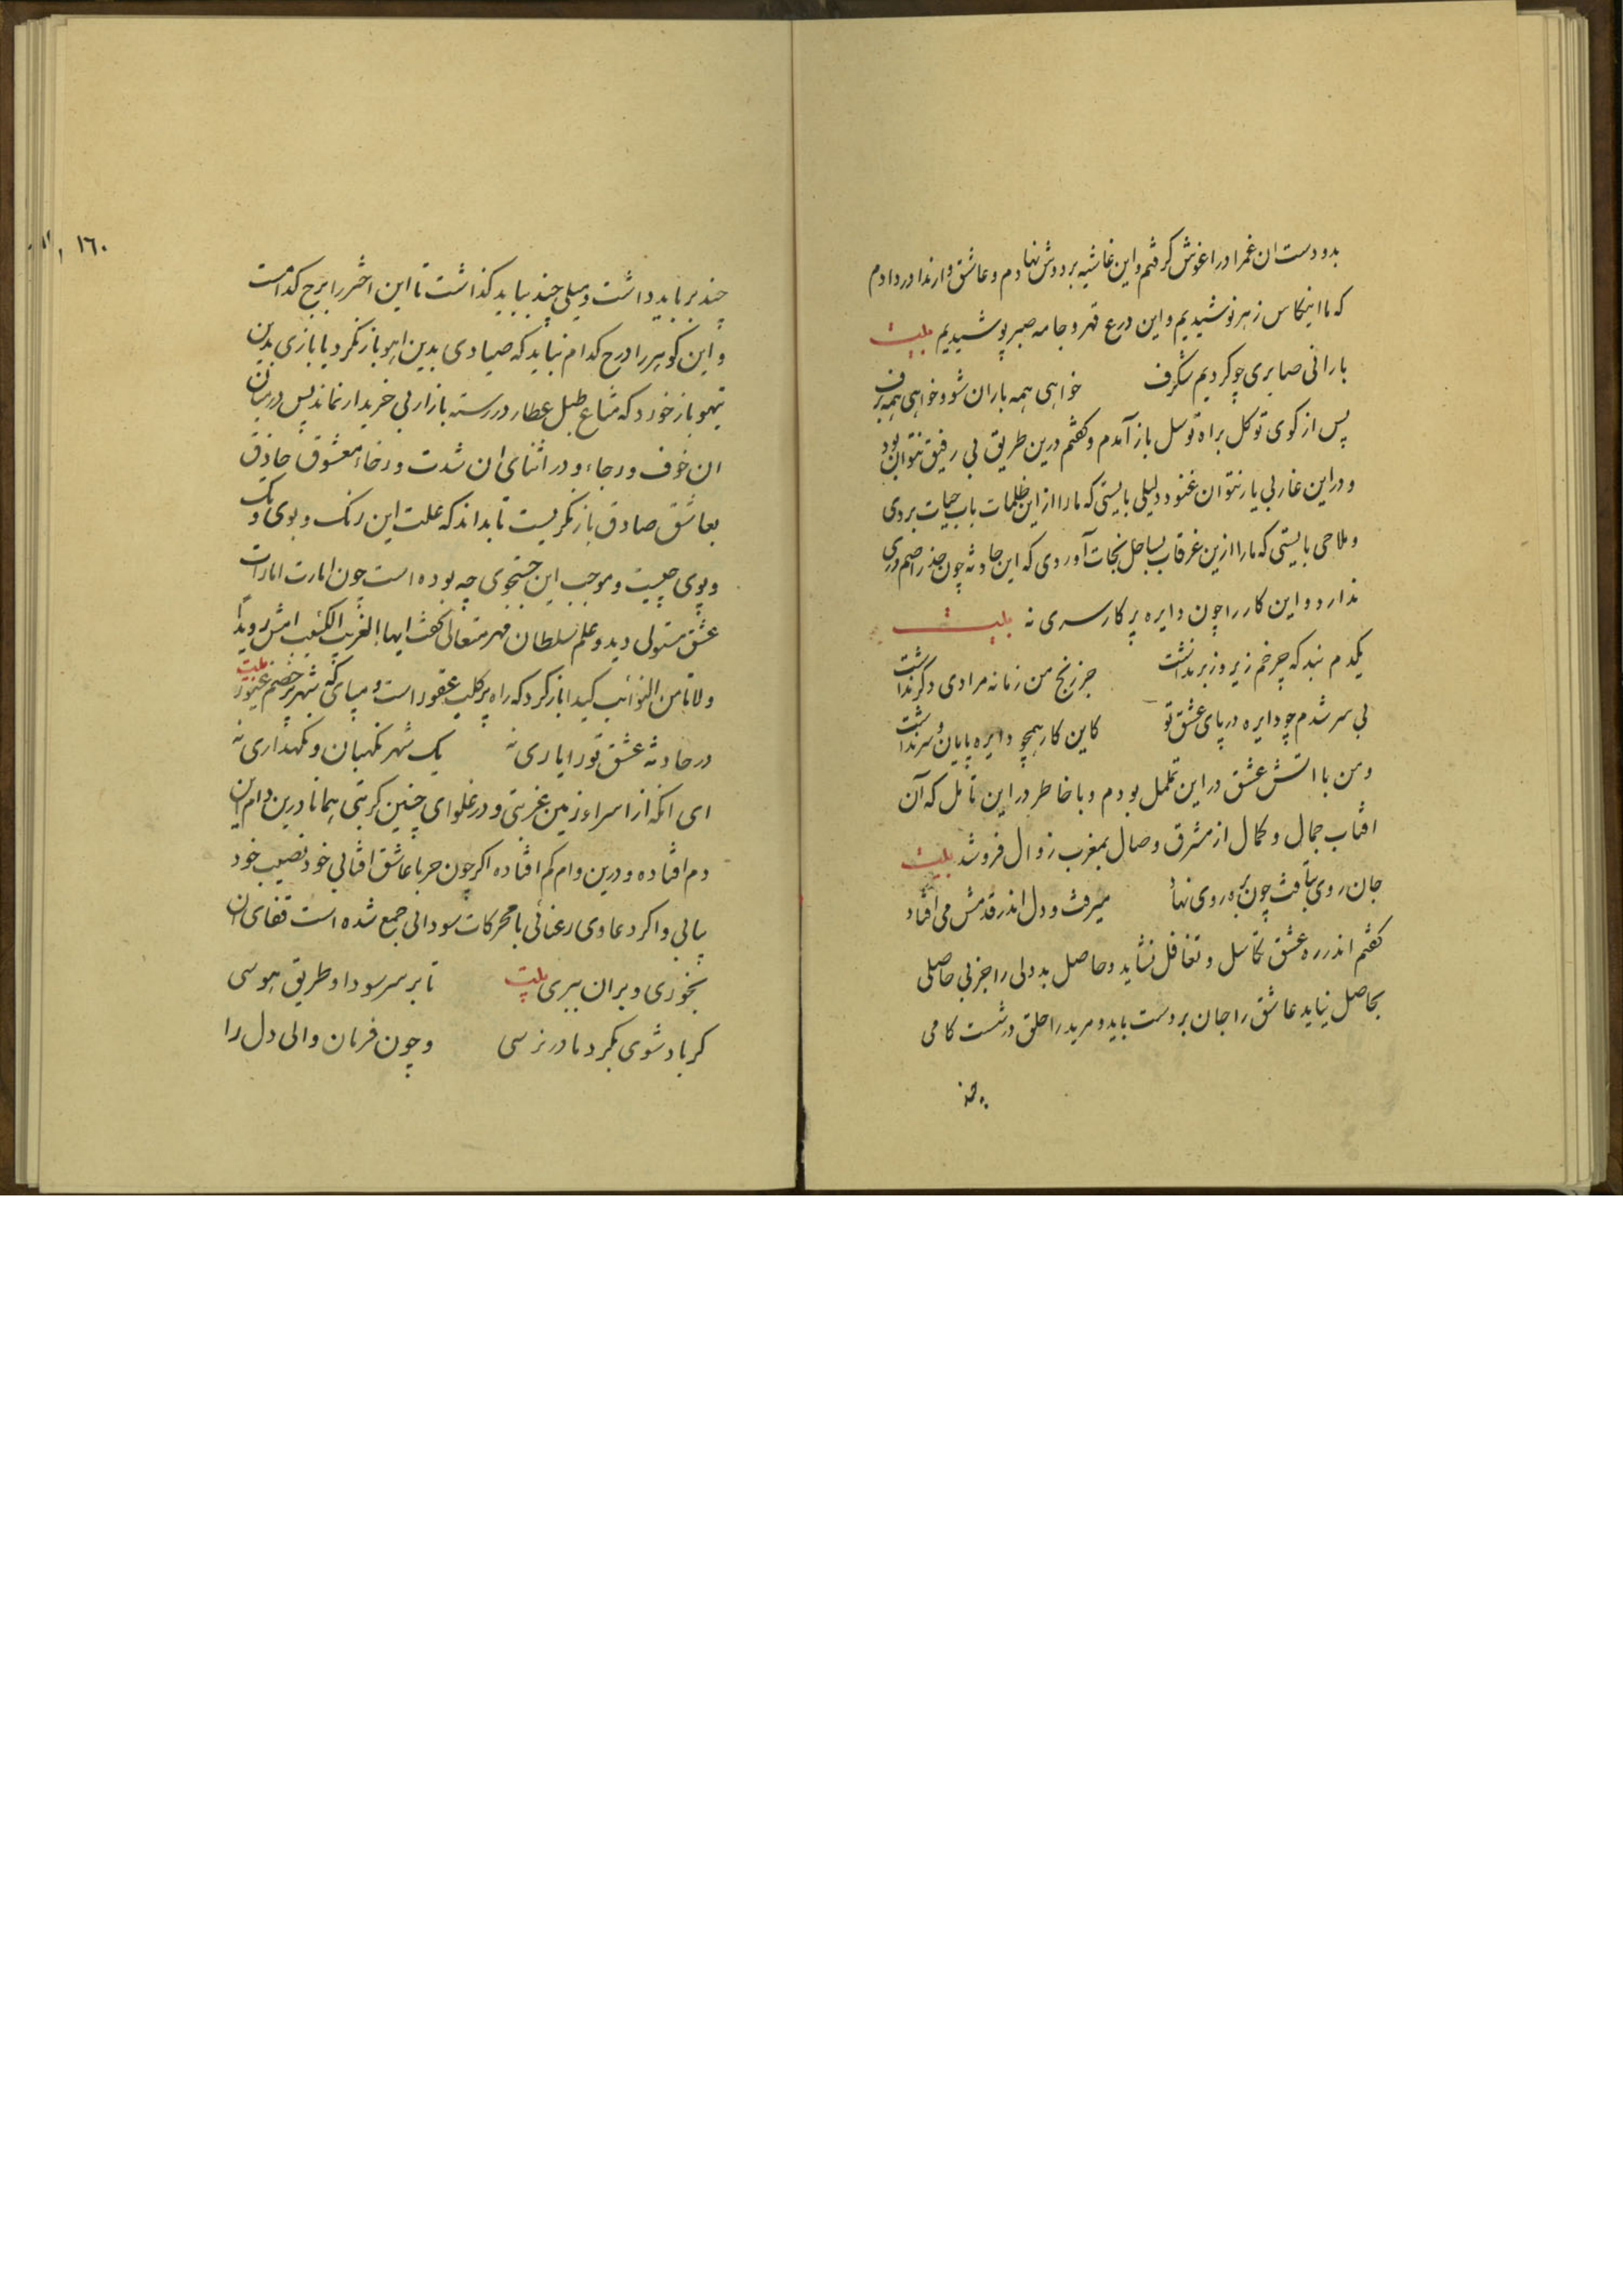 بدو دست ان غمرا در اغوش کرفتم و این غاشیه بر دوش نهادم و عاشق وار ندا در دادم
که ما اینکاس زهر نوشیدیم و این درع قهر و جامه صبر پوشیدیم بیت
بارانی صابری چو کردیم شکرف خواهی همه باران شو و خواهی همه برف
پس از کوی توکل براه توسل باز آمدم و کفتم درین طریق بی رفیق نتوان بود
و در این غار بی یار نتوان غنود دلیلی بایستی که ما را از این ظلمات باب حیات بردی
و ملاحی بایستی که ما را ازین غرقاب بساحل نجات آوردی که این حادثه چون جذر اصم دری
ندارد و این کار را چون دایره پرکار سری نه بیت
یکدم نبد که چرخم زیر و زبر نداشت جز رنج من زمانه مرادی دکر نداشت
بی سر شدم چو دایره در پای عشق تو کاین کار همچو دایره پایان و سر نداشت
و من با اتش عشق در این تململ بودم و با خاطر در این تامل که آن
افتاب جمال و کمال از مشرق وصال بمغرب زوال فرو شد بیت
جان روی بتافت چون بره روی نهاد میرفت و دل اندر قدمش می افتاد
کفتم اندر ره عشق تکاسل و تغافل نشاید و حاصل بددلی را جز بی حاصلی
بحاصل نیاید عاشق را جان بر دست باید و مرید را حلق در شست کامی
۱۶۰
چند بر باید داشت و میلی چند بباید کذاشت تا این اختر را برج کدامست
و این کوهر را درج کدام نباید که صیادی بدین اهو باز نکرد یا بازی بدین
تیهو باز خورد که متاع طبل عطار در رسته بازار بی خریدار نماند پس در میان
ان خوف و رجاء و در اثنای ان شدت و رخاء معشوق حاذق
بعاشق صادق باز نکریست تا بداند که علت این رنک و بوی و تک
و پوی چیست و موجب این جستجوی چه بوده است چون امارت امارات
عشق مستولی دید و علم سلطان مهر متعالی کفت ایها الغریب الکئیب امش رویدا
ولا تامن النوائب کیدا باز کرد که راه پر کلب عقور است و مپای که شهر پر خصم غیور بیت
در حادثه عشق تو را یاری نه یک شهر نکهبان و نکهداری نه
ای انکه از اسراء زمین غربتی و در غلوای چنین کربتی همانا درین دام این
دم افتاده و درین وام کم افتاده اکر چون حربا عاشق افتابی خود نصیب خود
بیابی و اکر دعاوی رعنائی با محرکات سودائی جمع شده است قفای ان
بخوری و بران ببری بیت تا بر سر سودا و طریق هوسی
کر باد شوی بکرد ما در نرسی و چون فرمان والی دل را